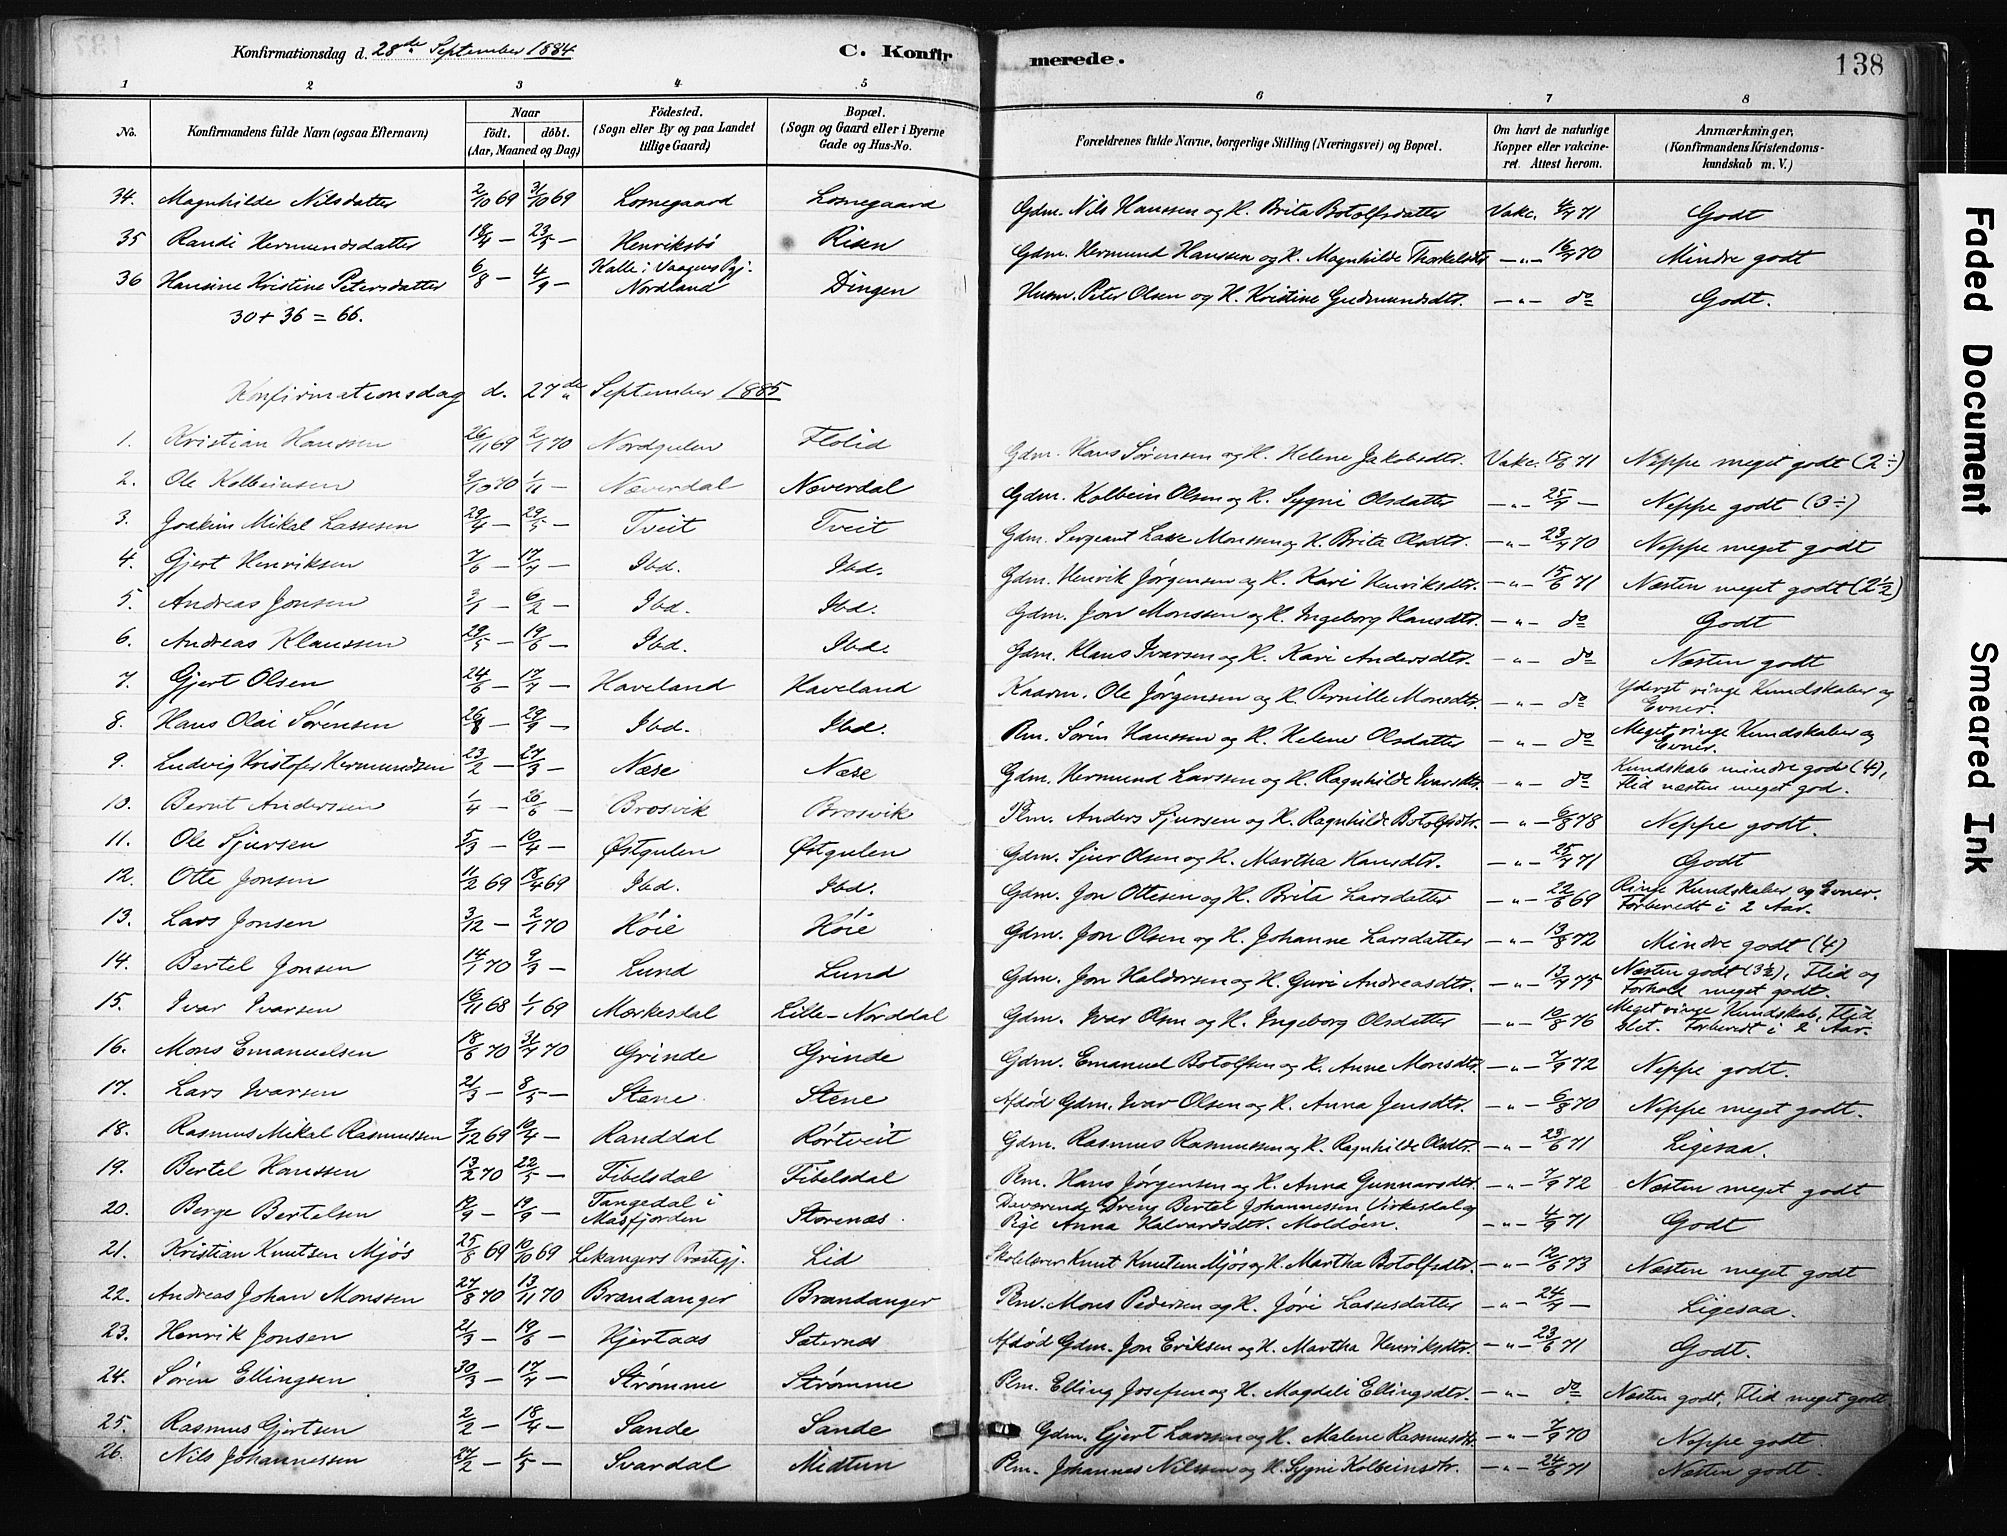 Konfirmationsdag d. 28de September 1884 C. Konfirmerede. 138
1 2 3 4 5 6 7 8
No. Konfirmandens fulde Navn (ogsaa Efternavn) Naar født. døbt. (Aar, Maaned og Dag) Fødested. (Sogn eller By og paa Landet tillige Gaard) Bopæl. (Sogn og Gaard eller i Byerne Gade og Hus-No. Forældrenes fulde Navne, borgerlige Stilling (Næringsvei) og Bopæl. Om havt de naturlige Kopper eller vakcineret. Attest herom. Anmærkninger, (Konfirmandens Kristendomskundskab m. V.)
34. Magnhilde Nilsdatter 2/10 69 31/10 69 Losnegaard Losnegaard Gdm. Nils Hanssen og H. Brita Botolfsdatter Vakc. 4/7 71 Godt
35 Randi Hermundsdatter 18/4 — 23/5 — Henriksbø Risn Gdm. Hermund Hanssen og H. Magnhilde Thorkelsdtr —"— 16/7 70 Mindre godt
36 Hansine Kristine Petersdatter 6/8 — 4/9 — Kalle i Vaagens Pgj. Nordland Dingen Husm. Peter Olsen og H. Kristine Gudmundsdtr. —"— do Godt.
30 + 36 = 66.
Konfirmationsdag d. 27de September 1885
1. Kristian Hanssen 26/11 69 2/1 70 Nordgulen Flolid Gdm. Hans Sørensen og H. Helene Jakobsdtr. Vakc. 15/6 71 Neppe meget godt (2÷)
2. Ole Kolbeinsen 9/10 70 1/11 — Næverdal Næverdal Gdm. Kolbein Olsen og H. Sygni Olsdatter —"— 25/7 — Neppe godt (3÷)
3. Joakim Mikal Lassesen 29/4 — 29/5 — Tveit Tveit Gdm. Sergeant Lasse Monssen og H. Brita Olsdtr. —"— 23/7 70 Neppe meget godt
4. Gjert Henriksen 7/6 — 17/7 — Ibd. Ibd. Gdm. Henrik Jørgensen og H. Kari Henriksdtr. —"— 15/6 71 Næsten meget godt (2½)
5. Andreas Jonsen 3/1 — 6/2 — Ibd. Ibd. Gdm. Jon Monssen og H. Ingeborg Hansdtr. —"— do Godt
6. Andreas Klaussen 29/5 — 19/6 — Ibd. Ibd. Gdm. Klaus Ivarsen og H. Kari Andersdtr. —"— do Næsten godt
7. Gjert Olsen 24/6 — 17/7 — Haveland Haveland Kaarm. Ole Jørgensen og H. Pernille Monsdtr. —"— do Yderst ringe Kundskaber og Evner.
8. Hans Olai Sørensen 26/8 — 29/9 — Ibd. Ibd. Plm. Sørin Hanssen og H. Helene Olsdatter —"— do Meget ringe Kundskaber og Evner.
9. Ludvig Kristofer Hermundsen 23/2 — 27/3 — Næse Næse Gdm. Hermund Larssen og H. Ragnhilde Ivarsdtr. —"— do Kundskab mindre god (4), Flid næsten meget god.
10. Bernt Anderssen 1/4 — 26/6 — Brosvik Brosvik Plm. Anders Sjursen og H. Ragnhilde Botolfsdtr. —"— 6/8 78 Neppe godt.
11. Ole Sjursen 5/3 — 10/4 — Østgulen Østgulen Gdm. Sjur Olsen og H. Martha Hansdtr. —"— 25/7 71 Godt
12. Otte Jonsen 11/2 69 18/4 69 Ibd. Ibd. Gdm. Jon Ottesen og H. Brita Larsdatter —"— 22/6 69 Ringe Kundskaber og Evner. Forberedt i 2 Aar.
13. Lars Jonsen 3/12 — 2/1 70 Høie Høie Gdm. Jon Olsen og H. Johanne Larsdatter —"— 13/8 72 Mindre godt (4)
14. Bertel Jonsen 14/1 70 9/3 — Lund Lund Gdm. Jon Haldorsen og H. Guri Andreasdtr. —"— 13/7 75 Næsten godt (3½), Flid og Forhold meget godt.
15. Ivar Ivarsen 16/11 68 1/1 69 Mørkesdal Lille-Norddal Gdm. Ivar Olsen og H. Ingeborg Olsdatter —"— 10/8 76 Meget ringe Kundskab, Flid slet. Forberedt i 2 Aar.
16. Mons Emanuelsen 18/6 70 31/7 70 Grinde Grinde Gdm. Emanuel Botolfsen og H. Anne Monsdtr. —"— 7/9 72 Neppe godt.
17. Lars Ivarsen 21/3 — 8/5 — Stene Stene Afdød Gdm. Ivar Olsen og H. Anna Jensdtr. —"— 6/8 70 Neppe meget godt.
18. Rasmus Mikal Rasmussen 9/12 69 10/4 — Randdal Rørtveit Gdm. Rasmus Rasmussen og H. Ragnhilde Olsdtr. —"— 23/6 71 Ligesaa.
19. Bertel Hanssen 13/2 70 22/5 — Tibelsdal Tibelsdal Plm. Hans Jørgensen og H. Anna Gunnarsdtr. —"— 7/9 72 Næsten meget godt
20. Berge Bertelsen 12/9 — 19/9 — Tangedal i Masfjorden Storenæs. Daværende Dreng Bertel Johannessen Virkesdal og Pige Anna Halvardsdtr. Moldøen. —"— 4/9 71 Godt
21. Kristian Knutsen Mjøs 25/8 69 10/10 69 Lekangers Præstegj. Lid Skolelærer Knut Knutsen Mjøs og H. Martha Botolfsdtr. —"— 12/6 73 Næsten meget godt
22. Andreas Johan Monssen 27/8 70 13/11 70 Brandanger Brandanger Plm. Mons Pedersen og H. Jøri Lassesdatter —"— 24/7 — Ligesaa.
23. Henrik Jonsen 21/3 — 19/6 — Hjertaas Sæternæs Afdød Gdm. Jon Eriksen og H. Martha Henriksdtr. —"— 23/6 71 Godt.
24. Sørin Ellingsen 30/3 — 17/7 — Strømme Strømme Plm. Elling Josefsen og H. Magdeli Ellingsdtr. —"— do Næsten godt, Flid meget godt.
25. Rasmus Gjertsen 2/2 — 18/4 — Sande Sande Gdm. Gjert Larssen og H. Malene Rasmusdtr. —"— 7/9 70 Neppe godt.
26. Nils Johannessen 27/2 — 1/5 — Svardal Midtun Plm. Johannes Nilssen og H. Sygni Kolbeinsdtr. —"— 24/6 71 Næsten godt.
Faded Document
Smeared Ink